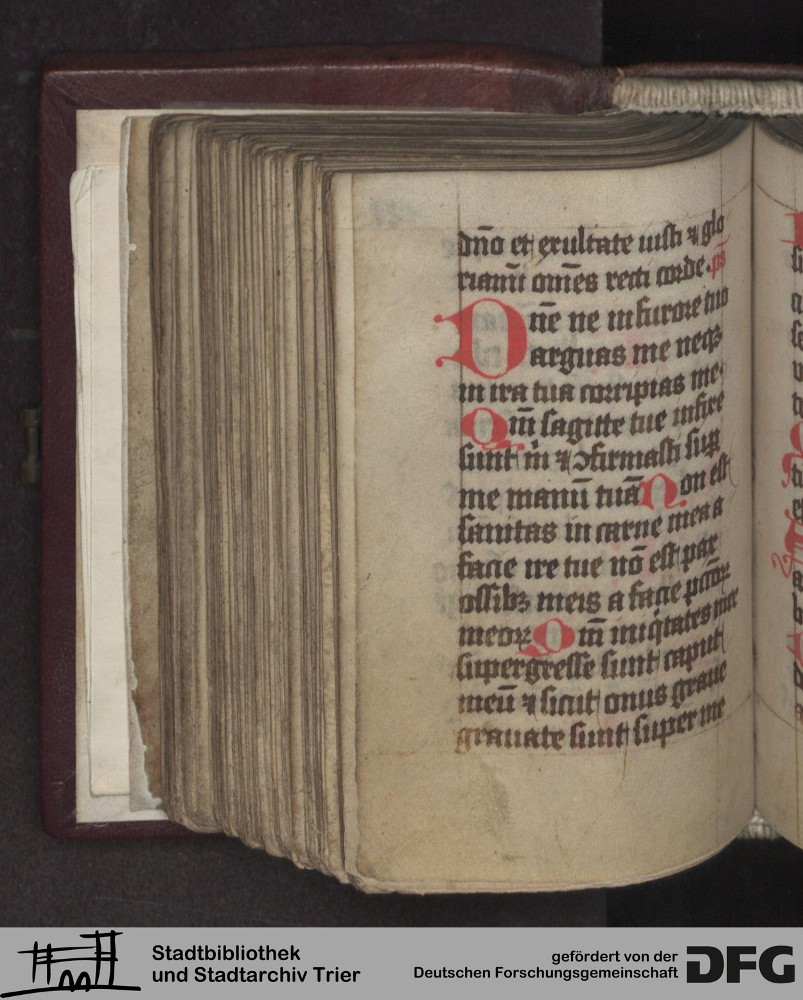 dn̄o et exultate iusti ⁊ glo
riami om̄es recti corde. ps̄
Dn̄e ne in furore tuo
arguas me neqꝫ
in ira tua corripias me.
Qm̄ sagitte tue infixe
sunt m̄ ⁊ ꝯfirmasti sup̄
me manū tuā Non est
sanitas in carne mea a
facie ire tue nō est pax
ossibꝫ meis a facie pc̄c̄oꝝ
meoꝝ Qm̄ iniq̇tates mee
supergresse sunt caput
meū ⁊ sicut onus graue
grauate sunt super me
Stadtbibliothek
und Stadtarchiv Trier
gefördert von der
Deutschen Forschungsgemeinschaft
DFG